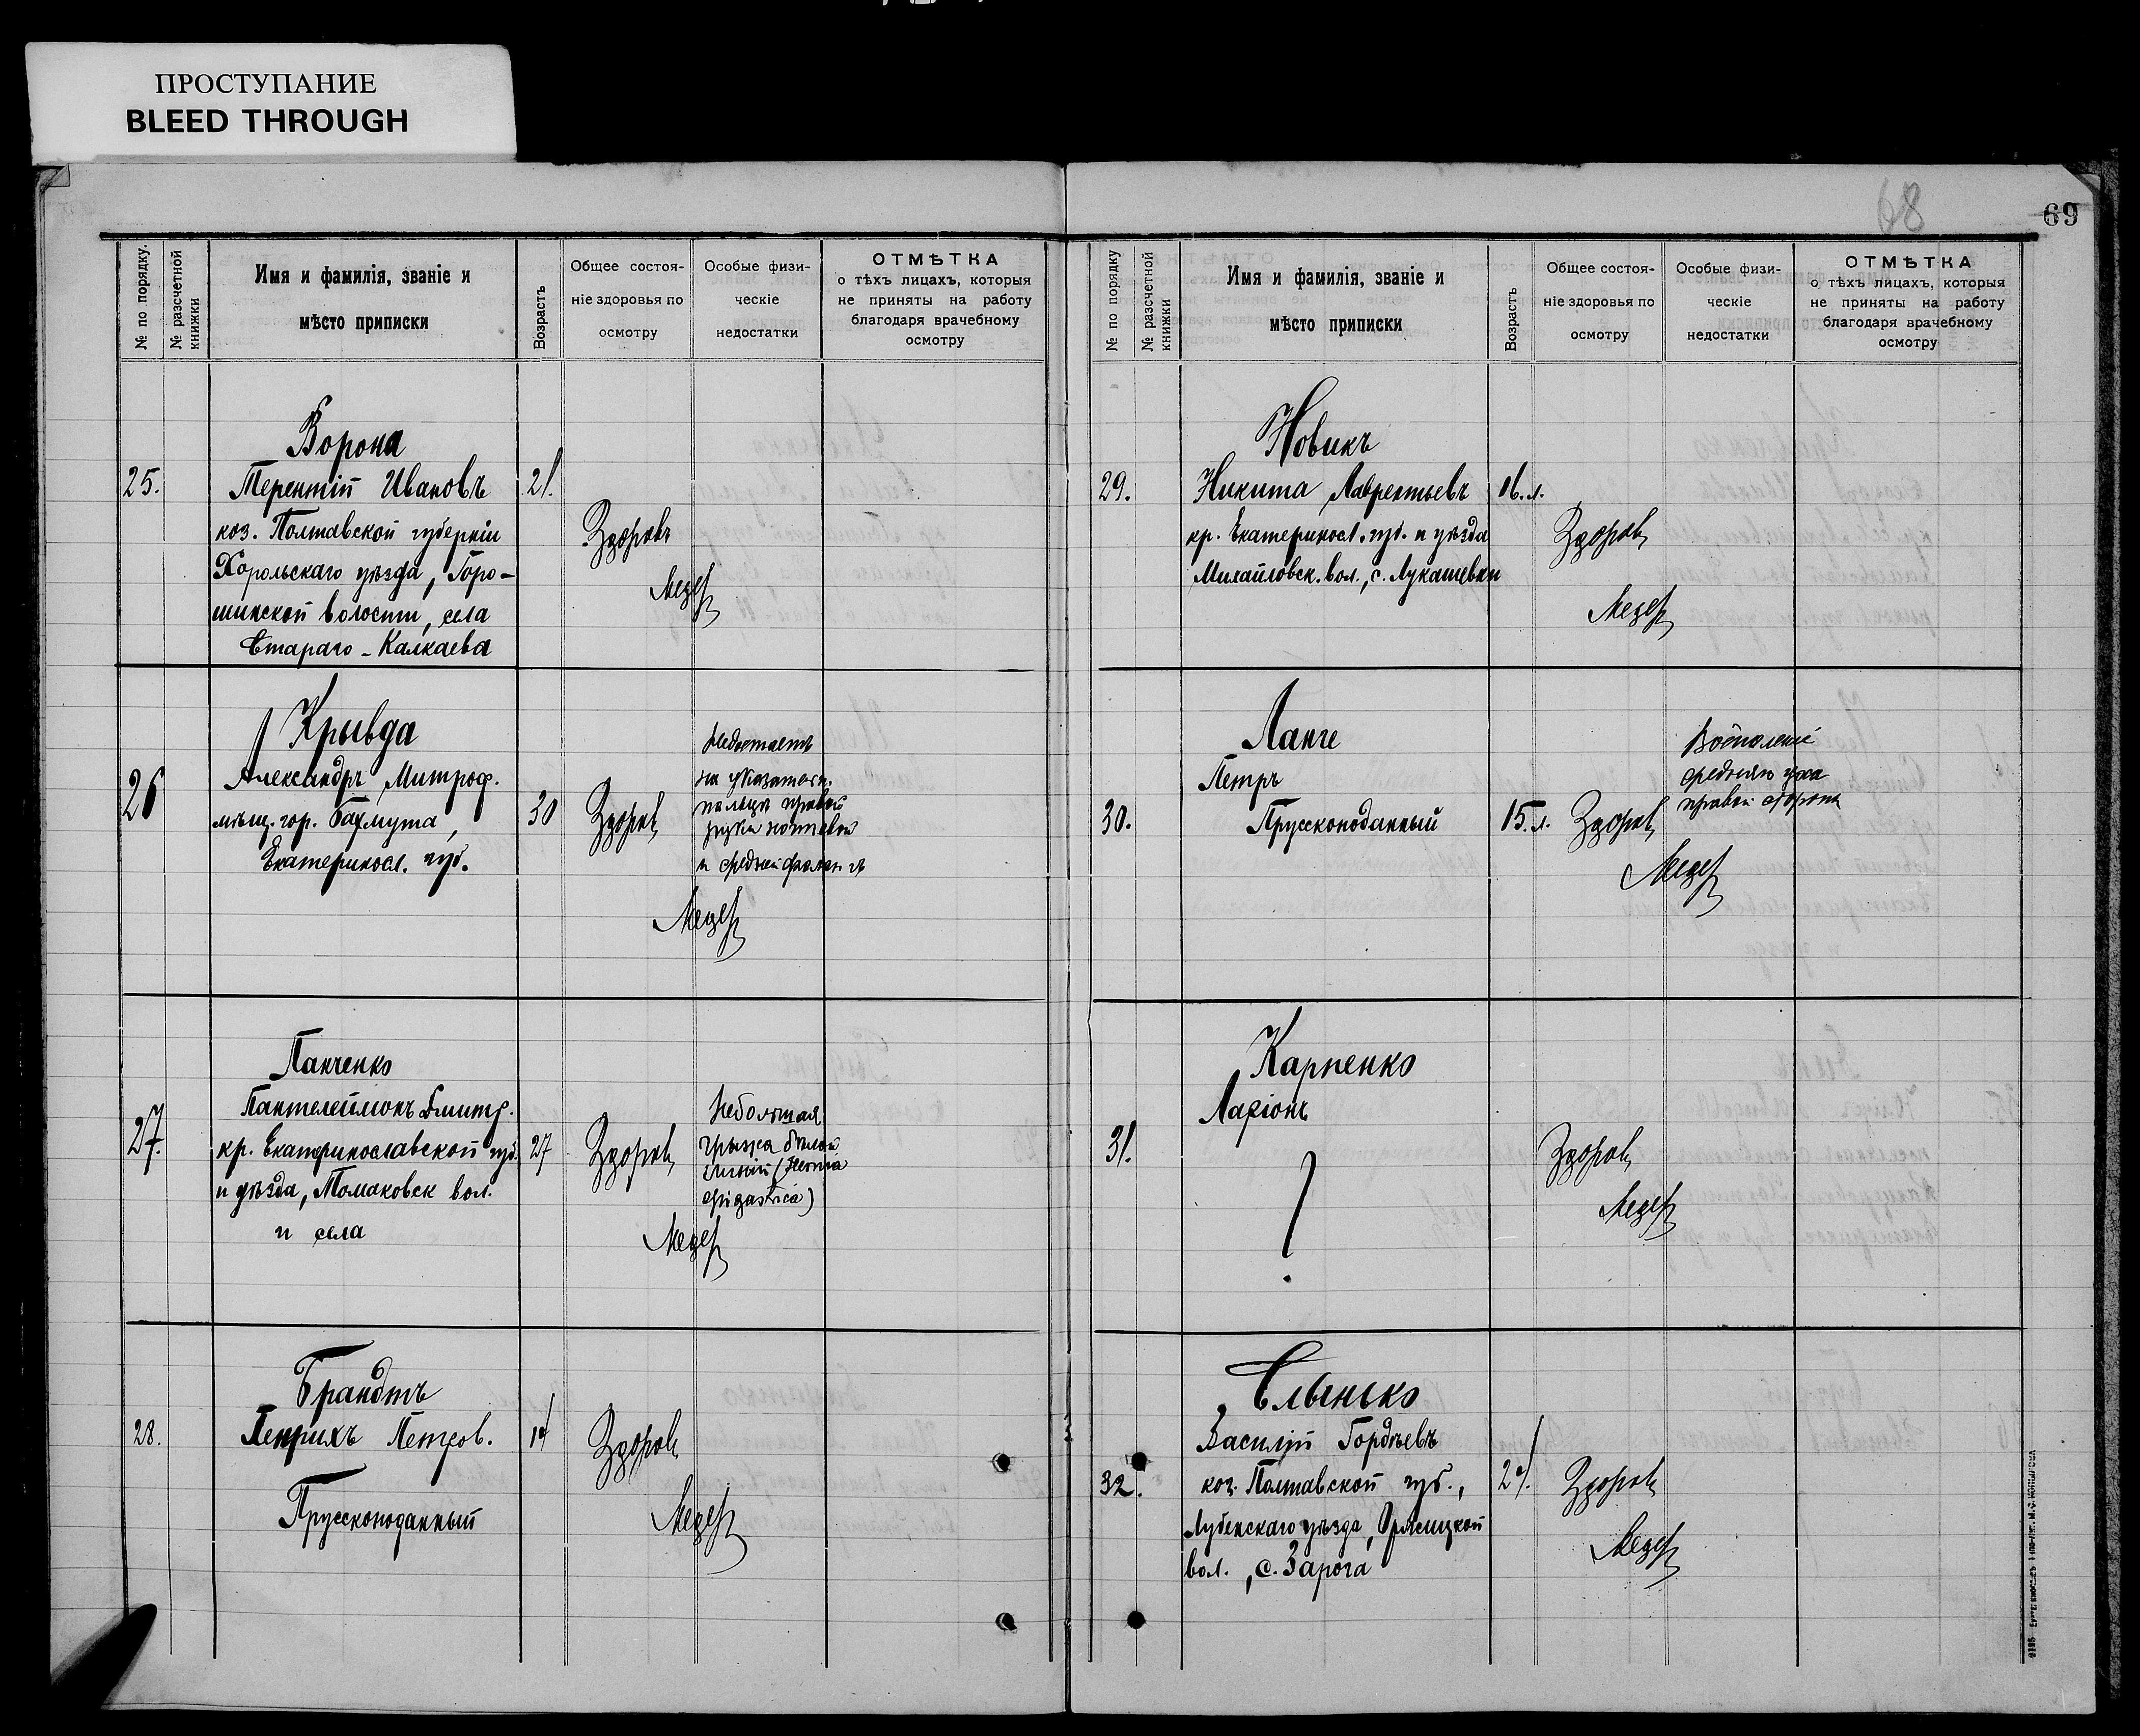 ПРОСТУПАНИЕ
BLEED THROUGH
68
69
№ по порядку.
№ разсчетной книжки
Имя и фамилія, званіе и
мѣсто приписки
Возрастъ
Общее состоя-
ніе здоровья по
осмотру
Особые физи-
ческіе
недостатки
ОТМѢТКА
о тѣхъ лицахъ, которыя
не приняты на работу
благодаря врачебному
осмотру
Ворона
25.
Терентій Ивановъ
21.
коз. Полтавской губерніи
Здоровъ
Хорольскаго уѣзда, Горо-
шинской волости, села
Стараго-Калкаева
Крывда
26
Александръ Митроф.
мѣщ. гор. Бахмута,
Екатеринос. губ.
30
Здоровъ
Недостаетъ
на указател.
пальцѣ правой
руки ногтевой
и средней фаланги
Панченко
27.
Пантелеймонъ Дмитр.
кр. Екатеринославской губ.
и уѣзда, Томаковск вол.
и села
27
Здоровъ
Небольшая
грыжа бѣлой
линіи (Hernia
epigastrica)
Брандтъ
28.
Генрихъ Петров.
Здоровъ
Прусскоподанный
№ по порядку
№ разсчетной книжки
Имя и фамилія, званіе и
мѣсто приписки
Возрастъ
Общее состоя-
ніе здоровья по
осмотру
Особые физи-
ческіе
недостатки
ОТМѢТКА
о тѣхъ лицахъ, которыя
не приняты на работу
благодаря врачебному
осмотру
Новикъ
29.
Никита Лаврентьевъ
16.л.
кр. Екатеринос. губ. и уѣзда
Здоровъ
Михайловск. вол., с. Лукашевки
Ланге
Петръ
30.
Прусскоподанный
15.л.
Здоровъ
Воспаленіе
средняго уха
правой стороны
Карпенко
Ларіонъ
31.
?
Здоровъ
Слынько
Василій Гордѣевъ
32.
коз. Полтавской губ.,
Здоровъ
Лубенскаго уѣзда,
вол., с. Зарога